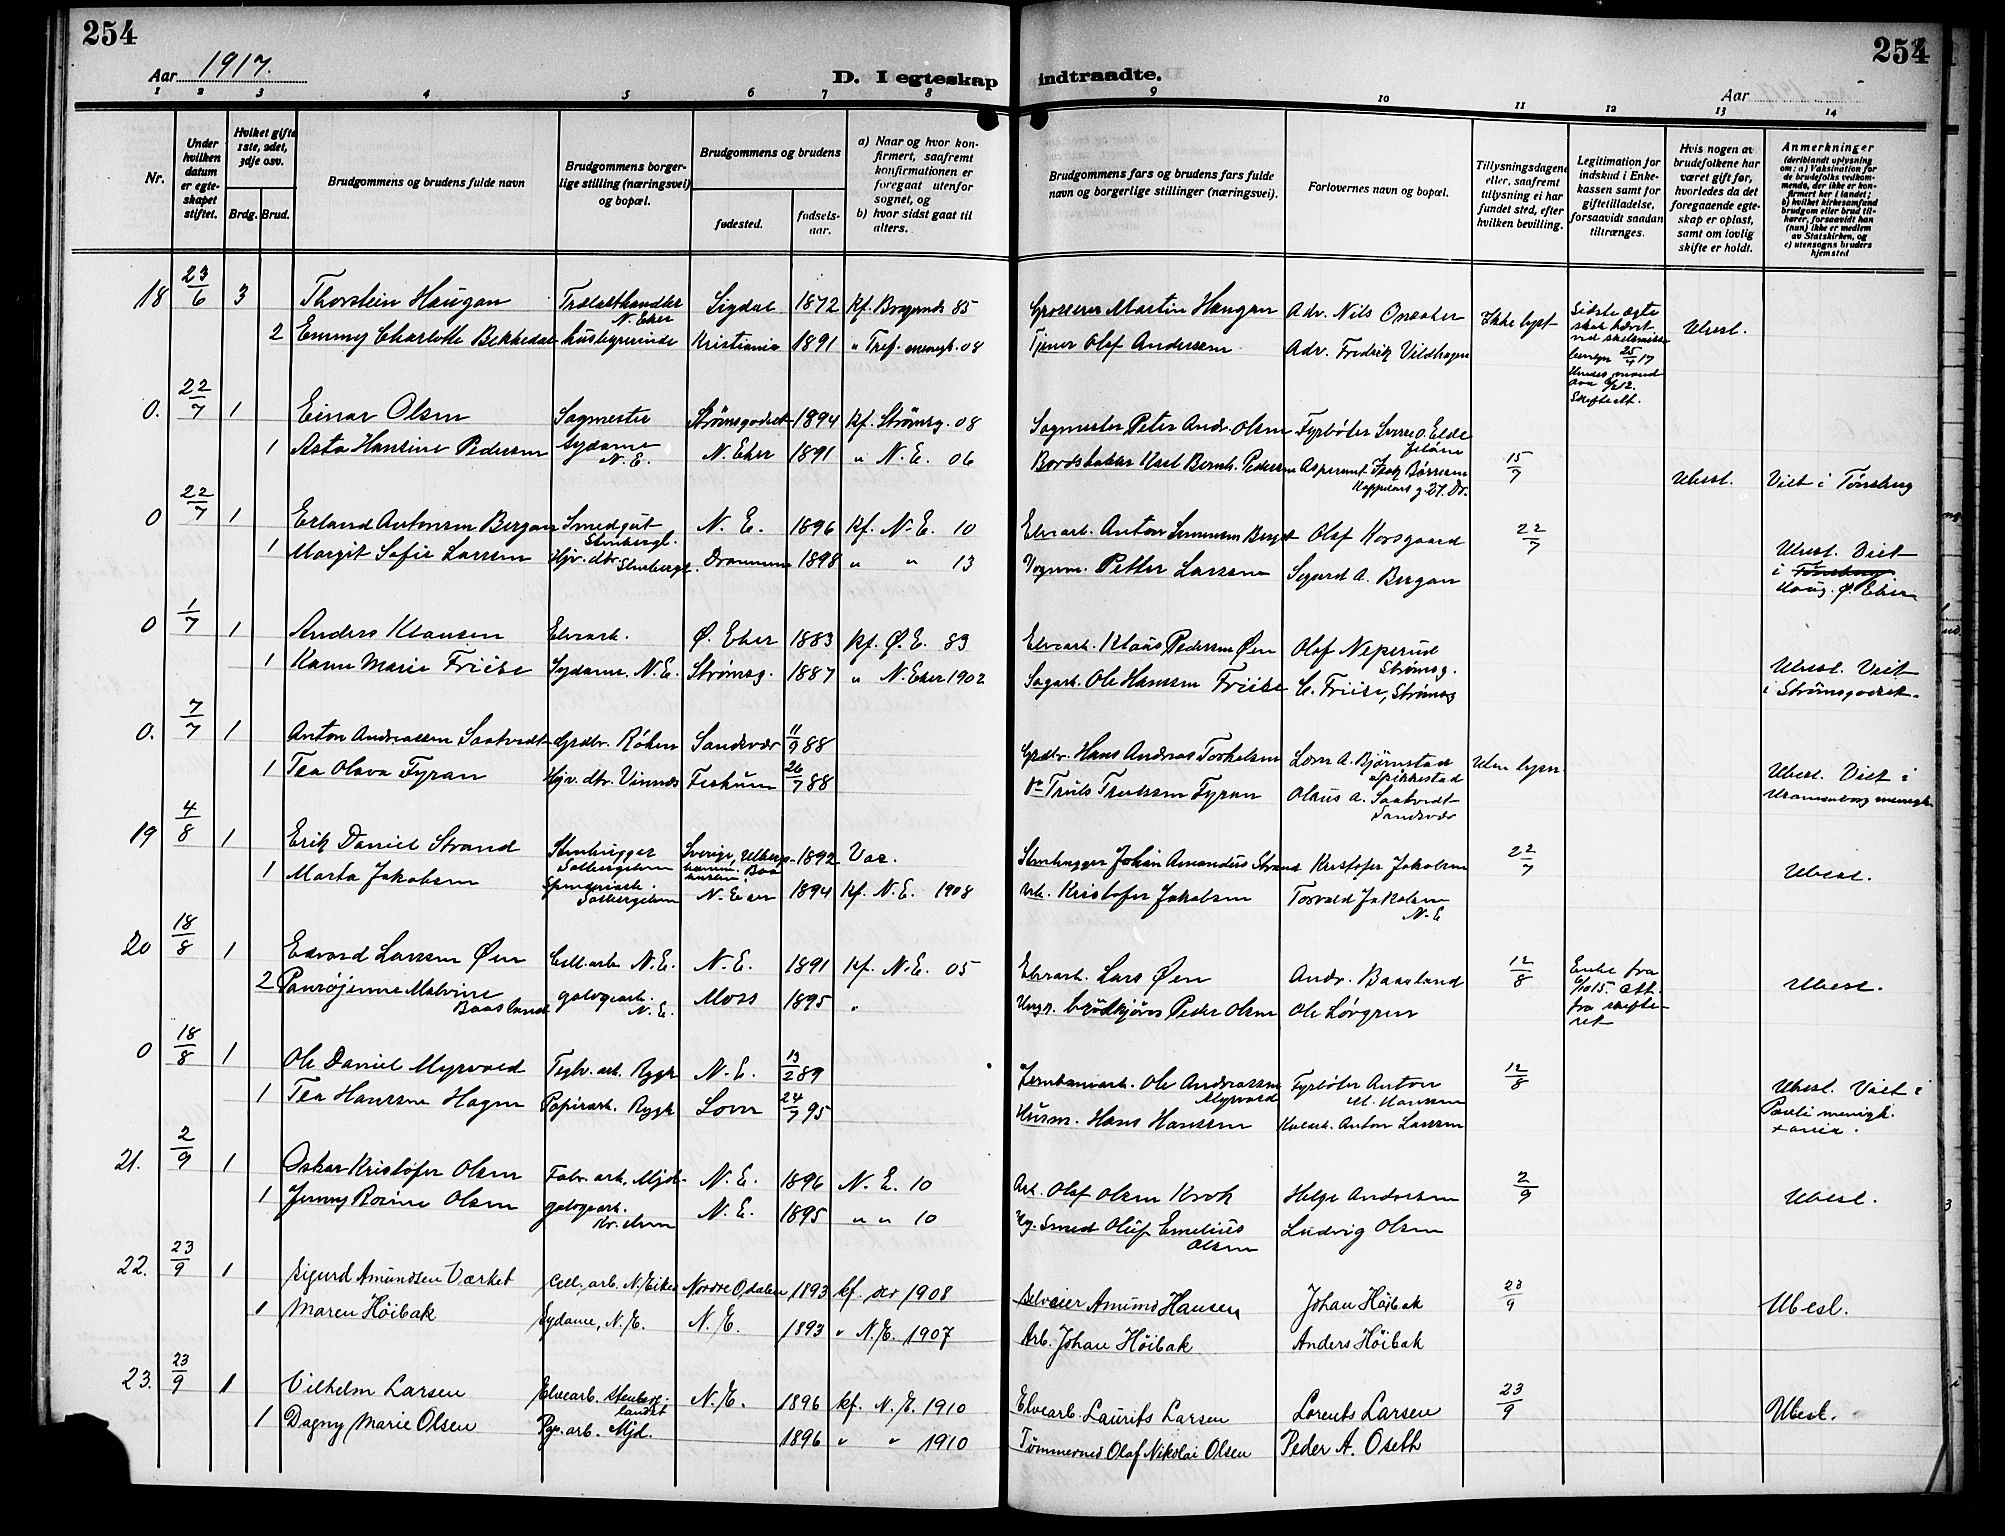 254
254
Aar 1917.
D. I egteskap indtraadte.
Aar
1 2 3 4 5 6 7 8 9 10 11 12 13 14
Nr.
Under hvilken datum er egteskapet stiftet.
Hvilket gifte 1ste, 2det, 3dje osv.
Brdg. Brud.
Brudgommens og brudens fulde navn
Brudgommens borgerlige stilling (næringsvei) og bopæl.
Brudgommens og brudens
fødested.
fødselsaar.
a) Naar og hvor konfirmert, saafremt konfirmationen er foregaat utenfor sognet, og
b) hvor sidst gaat til alters.
Brudgommens fars og brudens fars fulde navn og borgerlige stillinger (næringsvei).
Forlovernes navn og bopæl.
Tillysningsdagene eller, saafremt tillysning ei har fundet sted, efter hvilken bevilling.
Legitimation for indskud i Enkekassen samt for giftetilladelse, forsaavidt saadan tiltrænges.
Hvis nogen av brudefolkene har været gift før, hvorledes da det foregaaende egteskap er opløst, samt om lovlig skifte er holdt.
Anmerkninger
(deriblandt oplysning om: a) Vaksination for de brudefolks vedkommende, der ikke er konfirmert her i landet; b) hvilket kirkesamfund brudgom eller brud tilhører, forsaavidt han (hun) ikke er medlem av Statskirken, og c) utensogns bruders hjemsted
18 23/6 3 Thorstein Haugan Trælasthandler N. Eker Sigdal 1872 Kf. Bragernes 85 Grosserer Martin Haugan Adv. Nils Onsaker Ikke lyst Ubesl.
2 Emmy Charlotte Bekkedal Kristiania 1891 " Tref. menigh. 08 Tjener Olaf Anderssen Adv. Fredrik Vildhagen
0. 22/7 1 Einar Olsen Sagmester Strømsgodset 1894 Kf. Strømsg. 08 Sagmester Peter Andr. Olsen Fyrbøter
1 Asta Hansine Pedersen Sydame N. E. N. Eker 1891 " N. E. 06 Karl Bernh. Pedersen 15/7 Ubesl. Viet i Tønsberg
0 22/7 1 Erland Antonsen Bergan Smedgut Stenbergl. N. E. 1896 Kf. N. E. 10 Elvearb. Anton Olaf Korsgaard 22/7
1 Margit Sofie Larssen Hjv. dtr. Stenbergl. Drammen 1898 " " 13 Petter Larssen Sigurd A. Bergan Ubesl. Viet i Tønsberg Haug. Ø. Eker
0 1/7 1 Anders Klausen Elvearb. Ø. Eker 1883 Kf. Ø. E. 83 Elvearb. Klaus Pedersen Øen Olaf Neperud Strømsg.
1 Karen Marie Friise Sydame. N. E. Strømsg. 1887 " N. Eker 1902 Sagarb. Ole Hanssen Friise C. Friise, Strømsg Ubesl. Viet i Strømsgodset.
0. 7/7 1 Anton Andreassen Saatvedt Grdbr. Røken Sandsvær 11/9 88 Grdbr. Hans Andreas Torkelsen Lorn A. Bjørnstad Spikkestad Uten lysn.
1 Tea Olava Fyran Hjv. dtr. Vinnæs Fiskum 26/7 88 Do Truls Trulssen Fyran Olaus A. Saatvedt Sandsvær Ubesl. Viet i Uranienborg menigh
19 4/8 1 Erik Daniel Strand Stenhugger Solbergelven Sverige, 1892 Vac. Stenhugger Johan Amandus Strand Kristofer Jakobsen 22/7
1 Marta Jakobsen Spinneriarb. Solbergelven N. Eker 1894 Kf. N. E. 1908 Arb. Kristofer Jakobsen Torvald Jakobsen N. E Ubesl.
20 18/8 1 Edvard Larssen Øen Cell. arb. N. E. N. E. 1891 Kf. N. E. 05 Elvearb. Lars Øen Andr. Baasland 12/8 Enke fra 6/10 15. Att. fra skifteret
2 Malvine Baasland galogearb. N. E. Moss 1895 " Peder Olsen Ole Løvgren Ubesl.
0 18/8 1 Ole Daniel Myrvold Teglv. arb. Rygh N. E. 13/2 89 Jernbanearb. Ole Andreassen Myrvold Fyrbøter Anton M. Hanssen 12/8
1 Tea Hanssen Hagen Papirarb. Rygh Lom 24/7 95 Husm. Hans Hanssen Anton Larssen Ubesl. Viet i Pauli menigh.
21. 2/9 1 Oskar Kristofer Olsen Fabr. arb. Mjd. N. E. 1896 N. E. 10 Arb. Olaf Olsen Krok Helge Andersen 2/9 Ubesl.
1 Jenny Rosine Olsen galogearb. N. E. 1895 " " 10 Smed Oluf Emelius Olsen Ludvig Olsen
22. 23/9 1 Sigurd Amundsen Værket Cell. arb. N. Eiker Nordre Odalen 1893 kf. der 1908 Selveier Amund Hansen Johan Høibak 23/9
1 Maren Høibak Sydame, N. E. N. E. 1893 " N. E. 1907 Arb. Johan Høibak Anders Høibak Ubesl.
23. 23/9 1 Vilhelm Larsen Elvearb. Stenbergslandet N. E. 1896 kf. N. E. 1910 Elvearb. Laurits Larsen Lorents Larsen 23/9
1 Dagny Marie Olsen Pap. arb. Mjd. 1896 " " 1910 Tømmermd Olaf Nikolai Olsen Peder A. Oseth Ubesl.